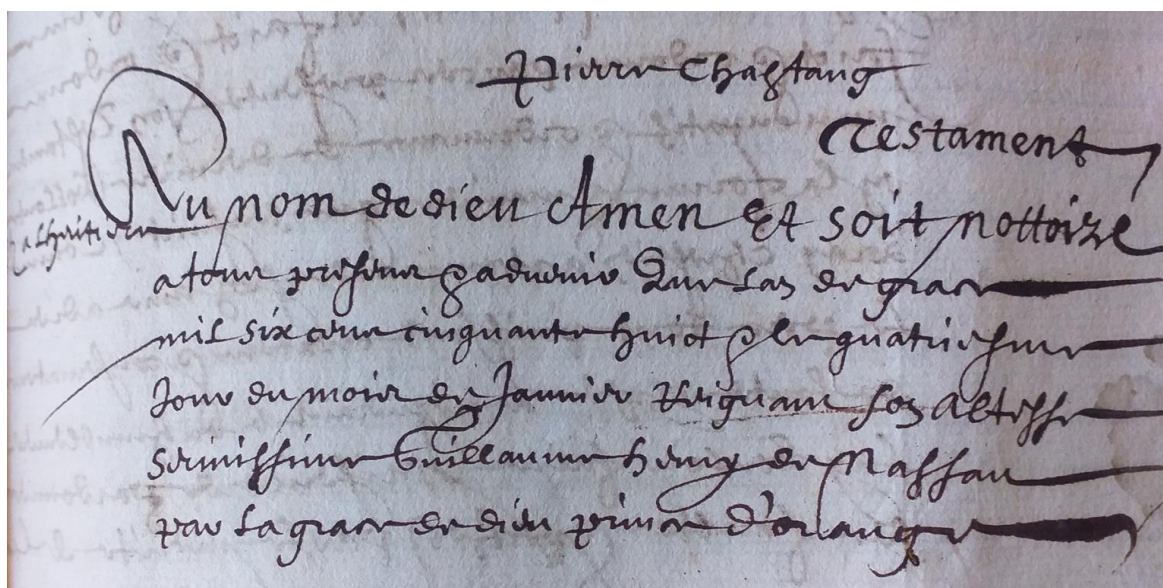 Pierre Chastang
Testament
Au nom de dieu Amen Et soit nottoire
a tous presens & advenir Que lan de grace
mil six cens cinquante huict & le quatriesme
Jour du mois de Janvier Reignant son Altesse
serenissime Guillaume henry de Nassau
par la grace de dieu prince d'orange